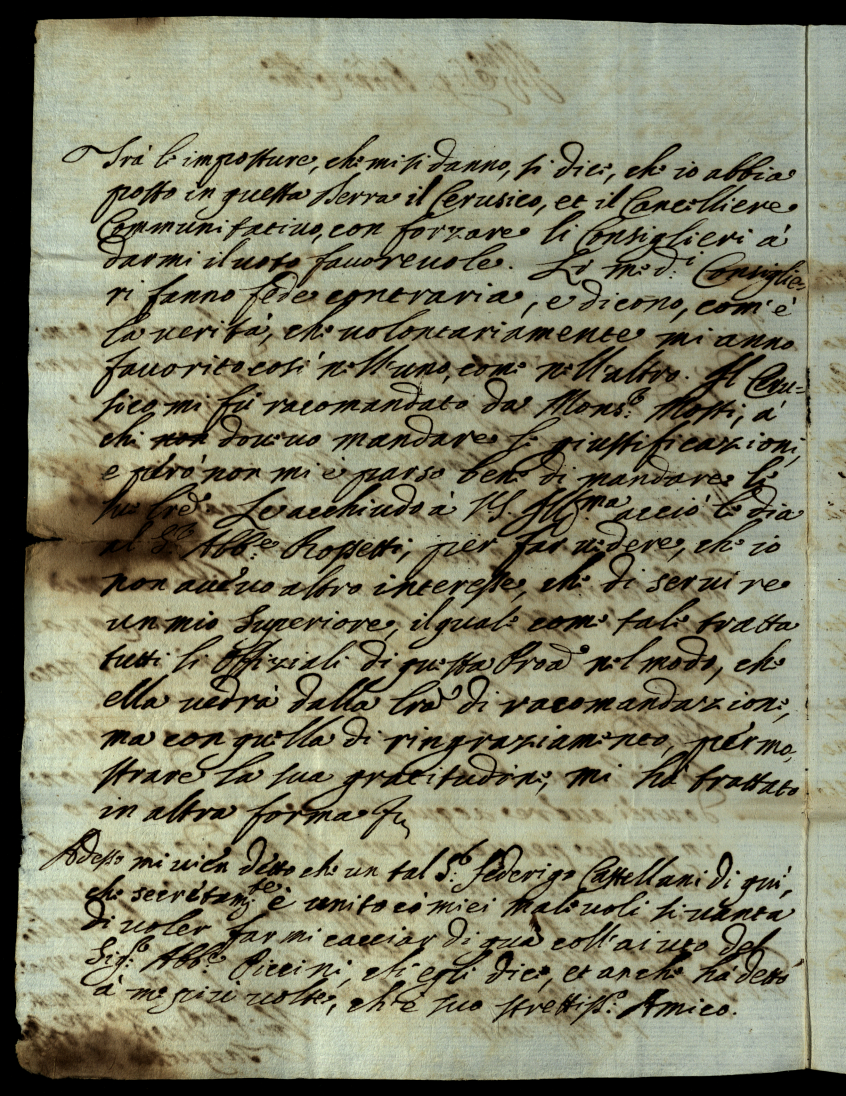 Trà le imposture, che mi si danno, si dice, che io abbia
posto in questa Terra il Cerusico, et il Cancelliere
Communitativo, con forzare li Consiglieri à
darmi il voto favorevole. Li med:i Consiglie=
ri fanno fede contraria, e dicono, com'è
la verità, che volontariamente mi anno
favorito così nell'uno, come nell'altro. Il Ceru=
sico mi fù racomandato da Mons.r Mosti, à
chi dovevo mandare le giustificazioni,
e però non mi è parso bene di mandare le
sue lre. Le acchiudo à V.S. Ill.ma acciò le dia
al S.r Abb.e Rossetti, per far vedere, che io
non avevo altro interesse, che di servire
un mio Superiore, il quale come tale tratta
tutti li Offiziali di questa Proa nel modo, che
ella vedrà dalla lra di racomandazione,
ma con quella di ringraziamento, per mo,
strare la sua gratitudine, mi hà trattato
in altra forma
Adesso mi vien detto che un tal S.r Federigo Castellani di quì,
che secretam.te è unito co miei malevoli si vanta
di voler farmi cacciar di quà coll'aiuto del
Sig.r Abb.e Piccini, ch'egli dice, et anche hà detto
à me più volte, ch'è suo strettiss.o Amico.